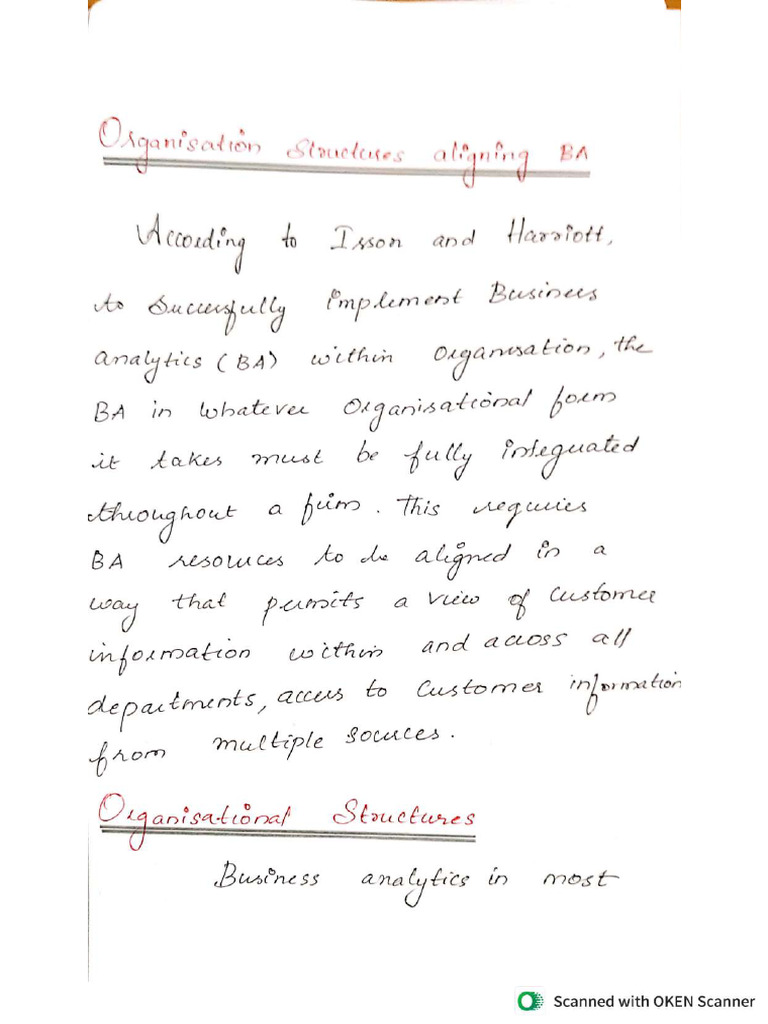 Organisation Structures aligning BA
According to Isson and Harriott,
to Successfully implement Business
analytics (BA) within organisation, the
BA in whatever organisational form
it takes must be fully integuated
throughout a firm. This requires
BA resources to be aligned in a
way that permits a view of customer
information within and across all
departments, access to customer information
from multiple sources.
Organisational Structures
Business analytics in most
Scanned with OKEN Scanner